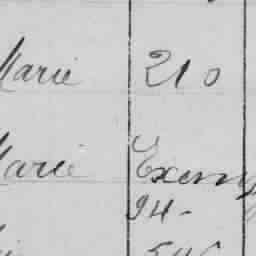 Marie 210
Marie Exemp
94-